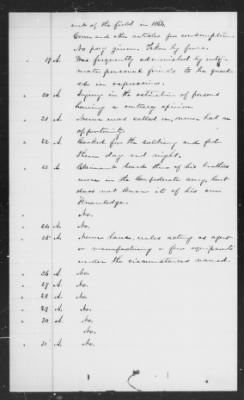 out of the field in 1864.
Corn and other articles for consumption.
No pay given. Taken by force.
" 19 A. Was frequently admonished by inti-
mate personal friends to be guard-
ed in expression.
" 20 A. Injury in the estimation of persons
having a contrary opinion.
" 21 A. Never was called on, never had an
opportunity.
" 22 A. Cooked for the soldiery and fed
them day and night.
" 23 A. Claimant heard three of his brothers
were in the Confederate army but
does not know it of his own
knowledge.
" No.
" 24 A. No.
" 25 A. Never had, unless acting as agent
or manufacturing a few
under the circumstances named.
" 26 A. No.
" 27 A. No.
" 28 A. No.
" 29 A. No.
" 30 A. No.
No.
" 31 A. No.